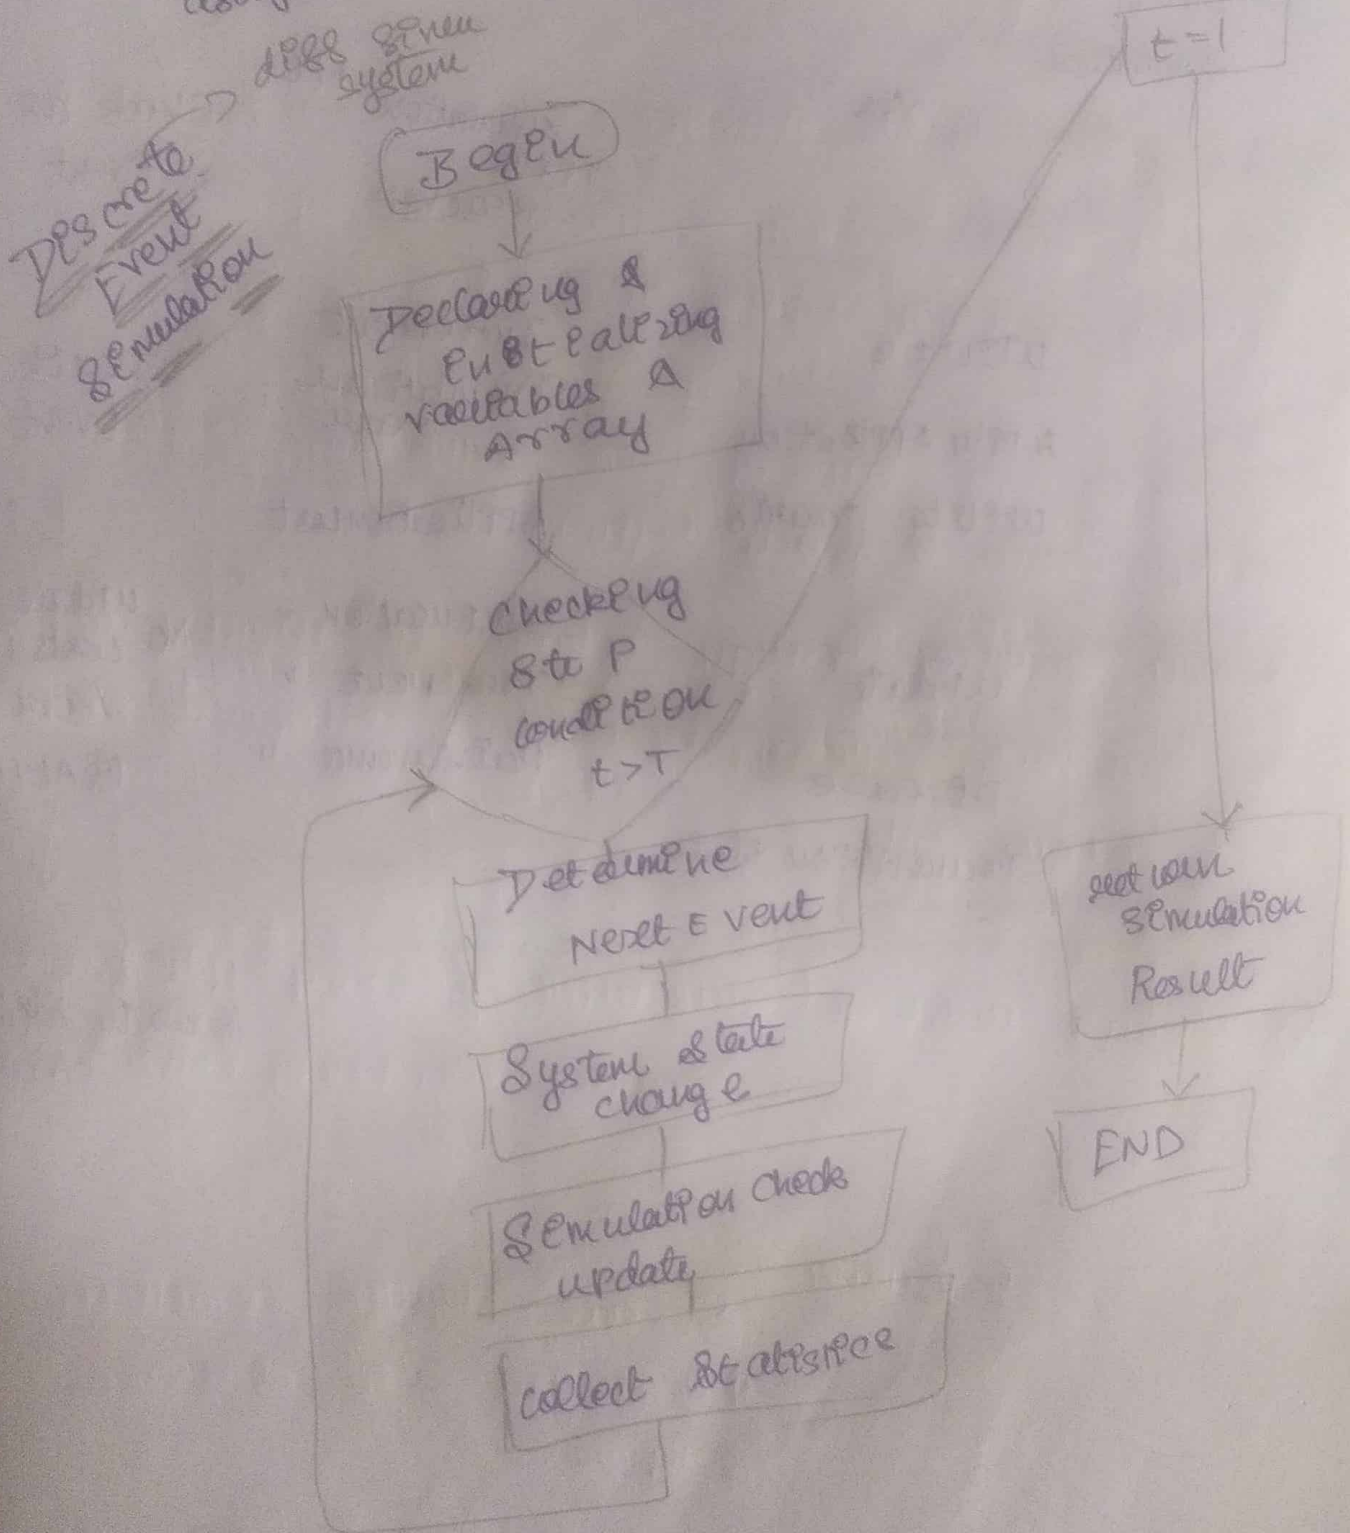 diff given
system
Discrete
Event
Simulation
t=1
Begin
Declaring &
initializing
variables &
Array
checking
stop
condition
t>T
Determine
Next Event
System state
change
Simulation Check
update
collect statistics
return
Simulation
Result
END